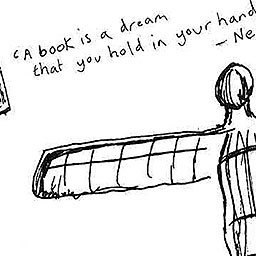 "A book is a dream
that you hold in your hand
- Ne